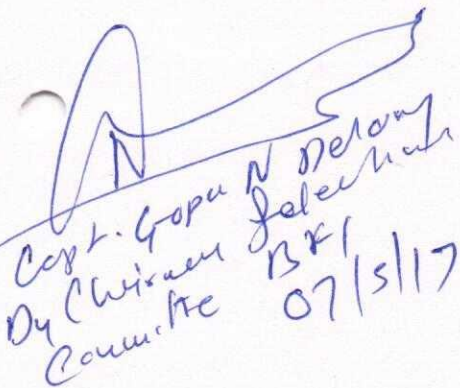 Capt. Gopu N Delamy
Dy Chairman Selection
Committe BFI
07/5/17